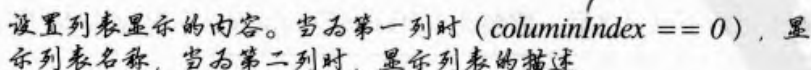 设置列表显示的内容。当为第一列时（columinIndex == 0），显
示列表名称，当为第二列时，显示列表的描述